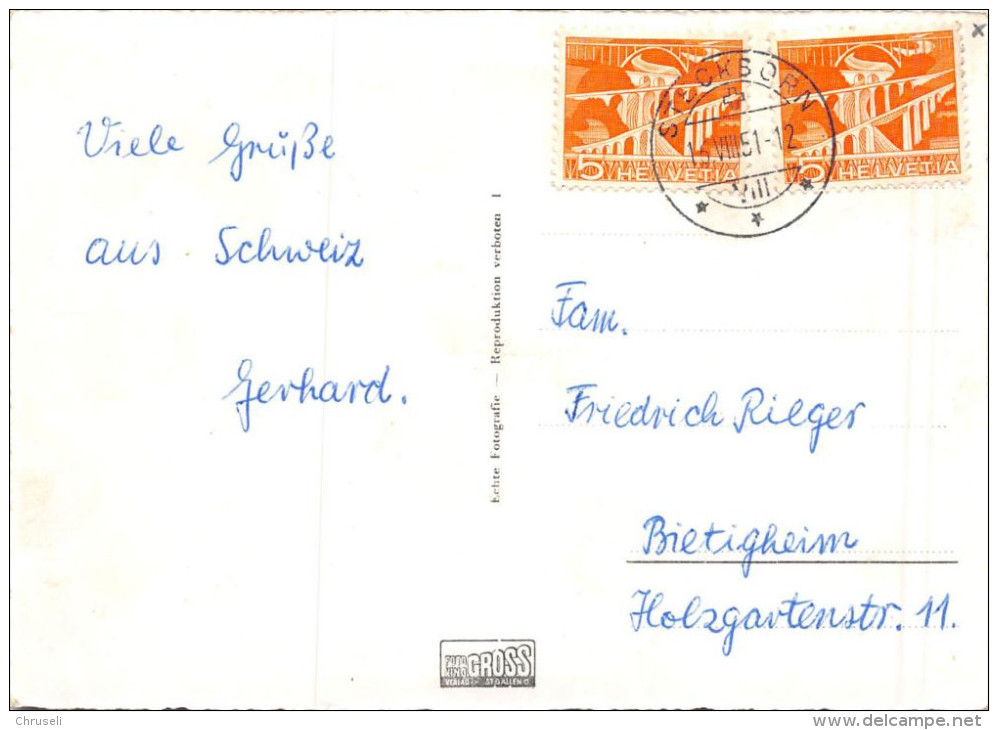 Viele Grüße
aus Schweiz
Gerhard.
Echte Fotografie — Reproduktion verboten I
5 HELVETIA
5 HELVETIA
STECKBORN
VIII.51-12
Fam.
Friedrich Rieger
Bietigheim
Holzgartenstr. 11.
FOTO
GROSS
VERLAG ST. GALLEN
Chruseli
delcampe.net